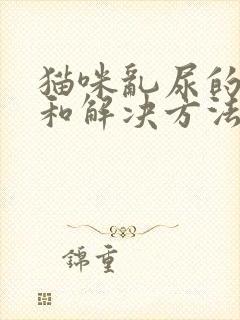 猫咪乱尿的
和解决方法
錦重